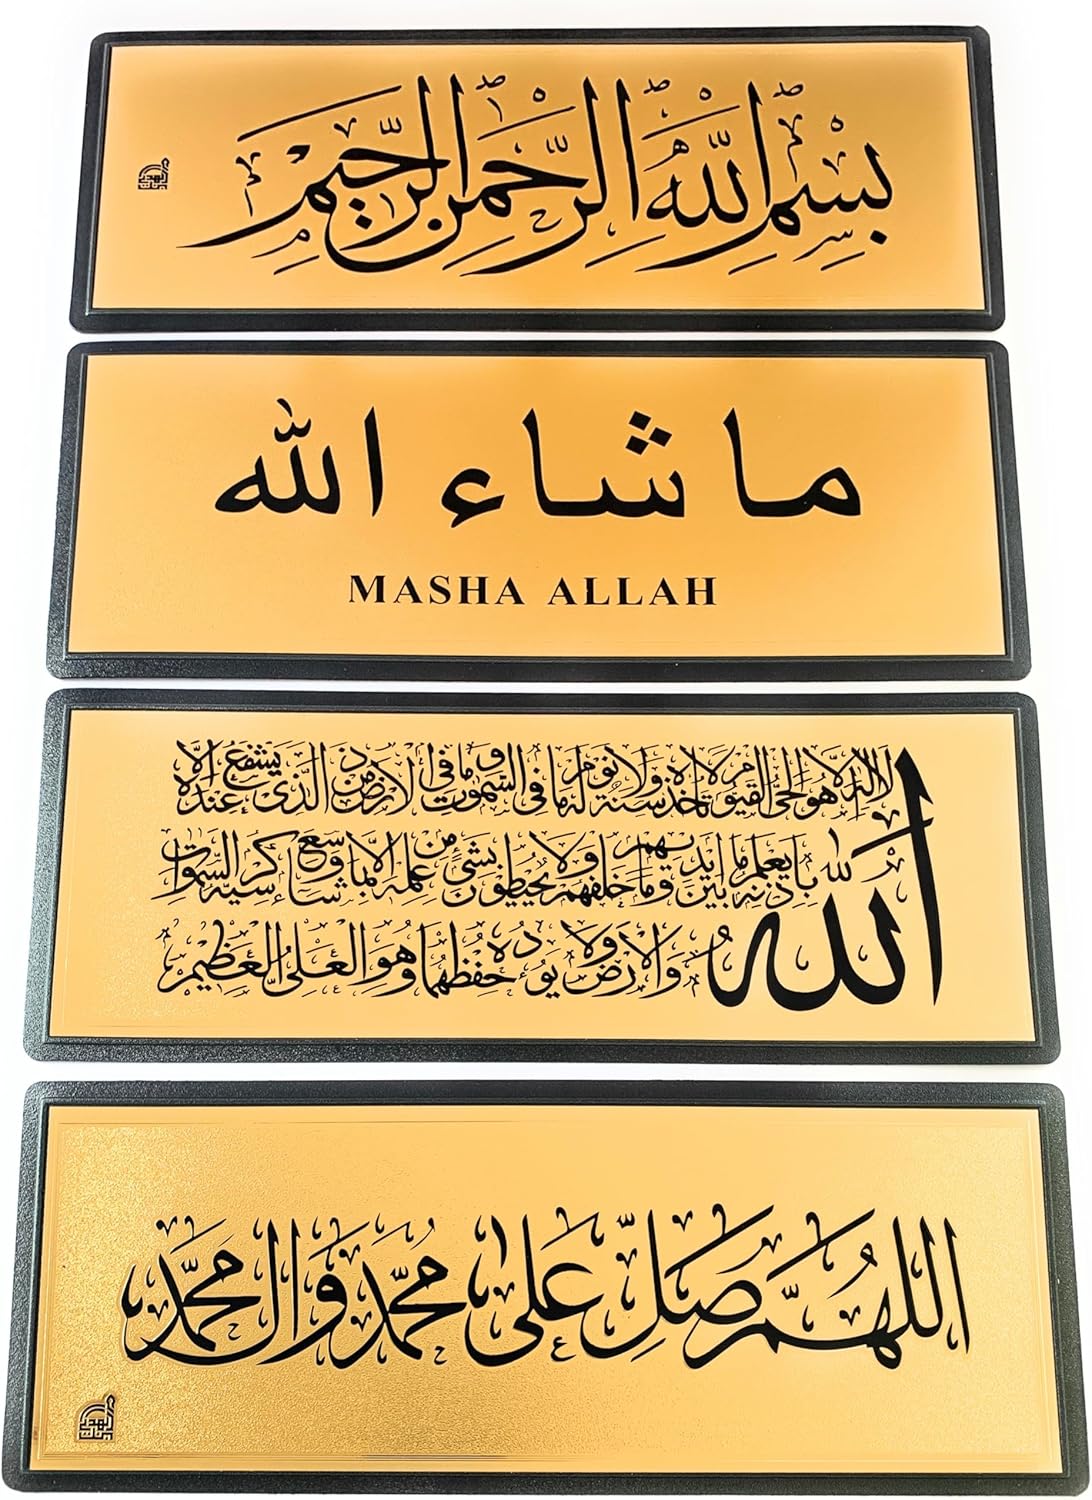 بسم الله الرحمن الرحيم
ما شاء الله
MASHA ALLAH
الله لا إله إلا هو الحي القيوم لا تأخذه سنة ولا نوم له ما في السموت وما في الارض من ذ الذي يشفع عنده إلا
بإذنه يعلم ما بين ايديهم وما خلفهم ولا يحيطون بشئ من علمه الا بما شاء وسع كرسيه السموات
والارض ولا يوده حفظهما وهو العلي العظيم
اللهم صل على محمد وال محمد